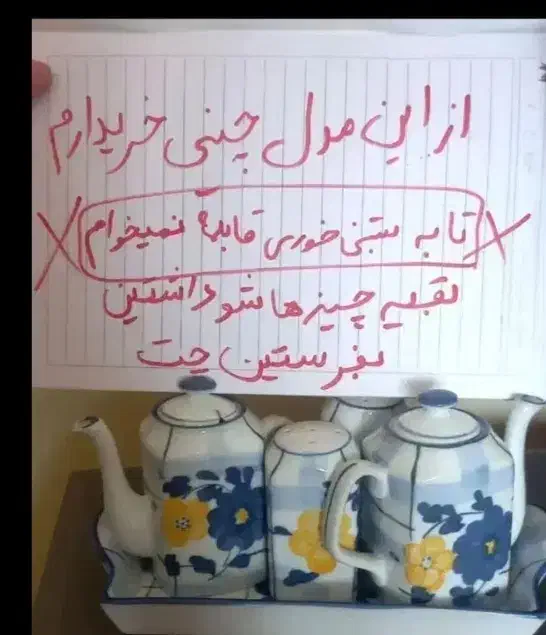 از این مدل چینی خریدارم
تابه بستنی خوری قابلمه نمیخوام
بقیه چیزهاشو داشتین
بفرستین چت